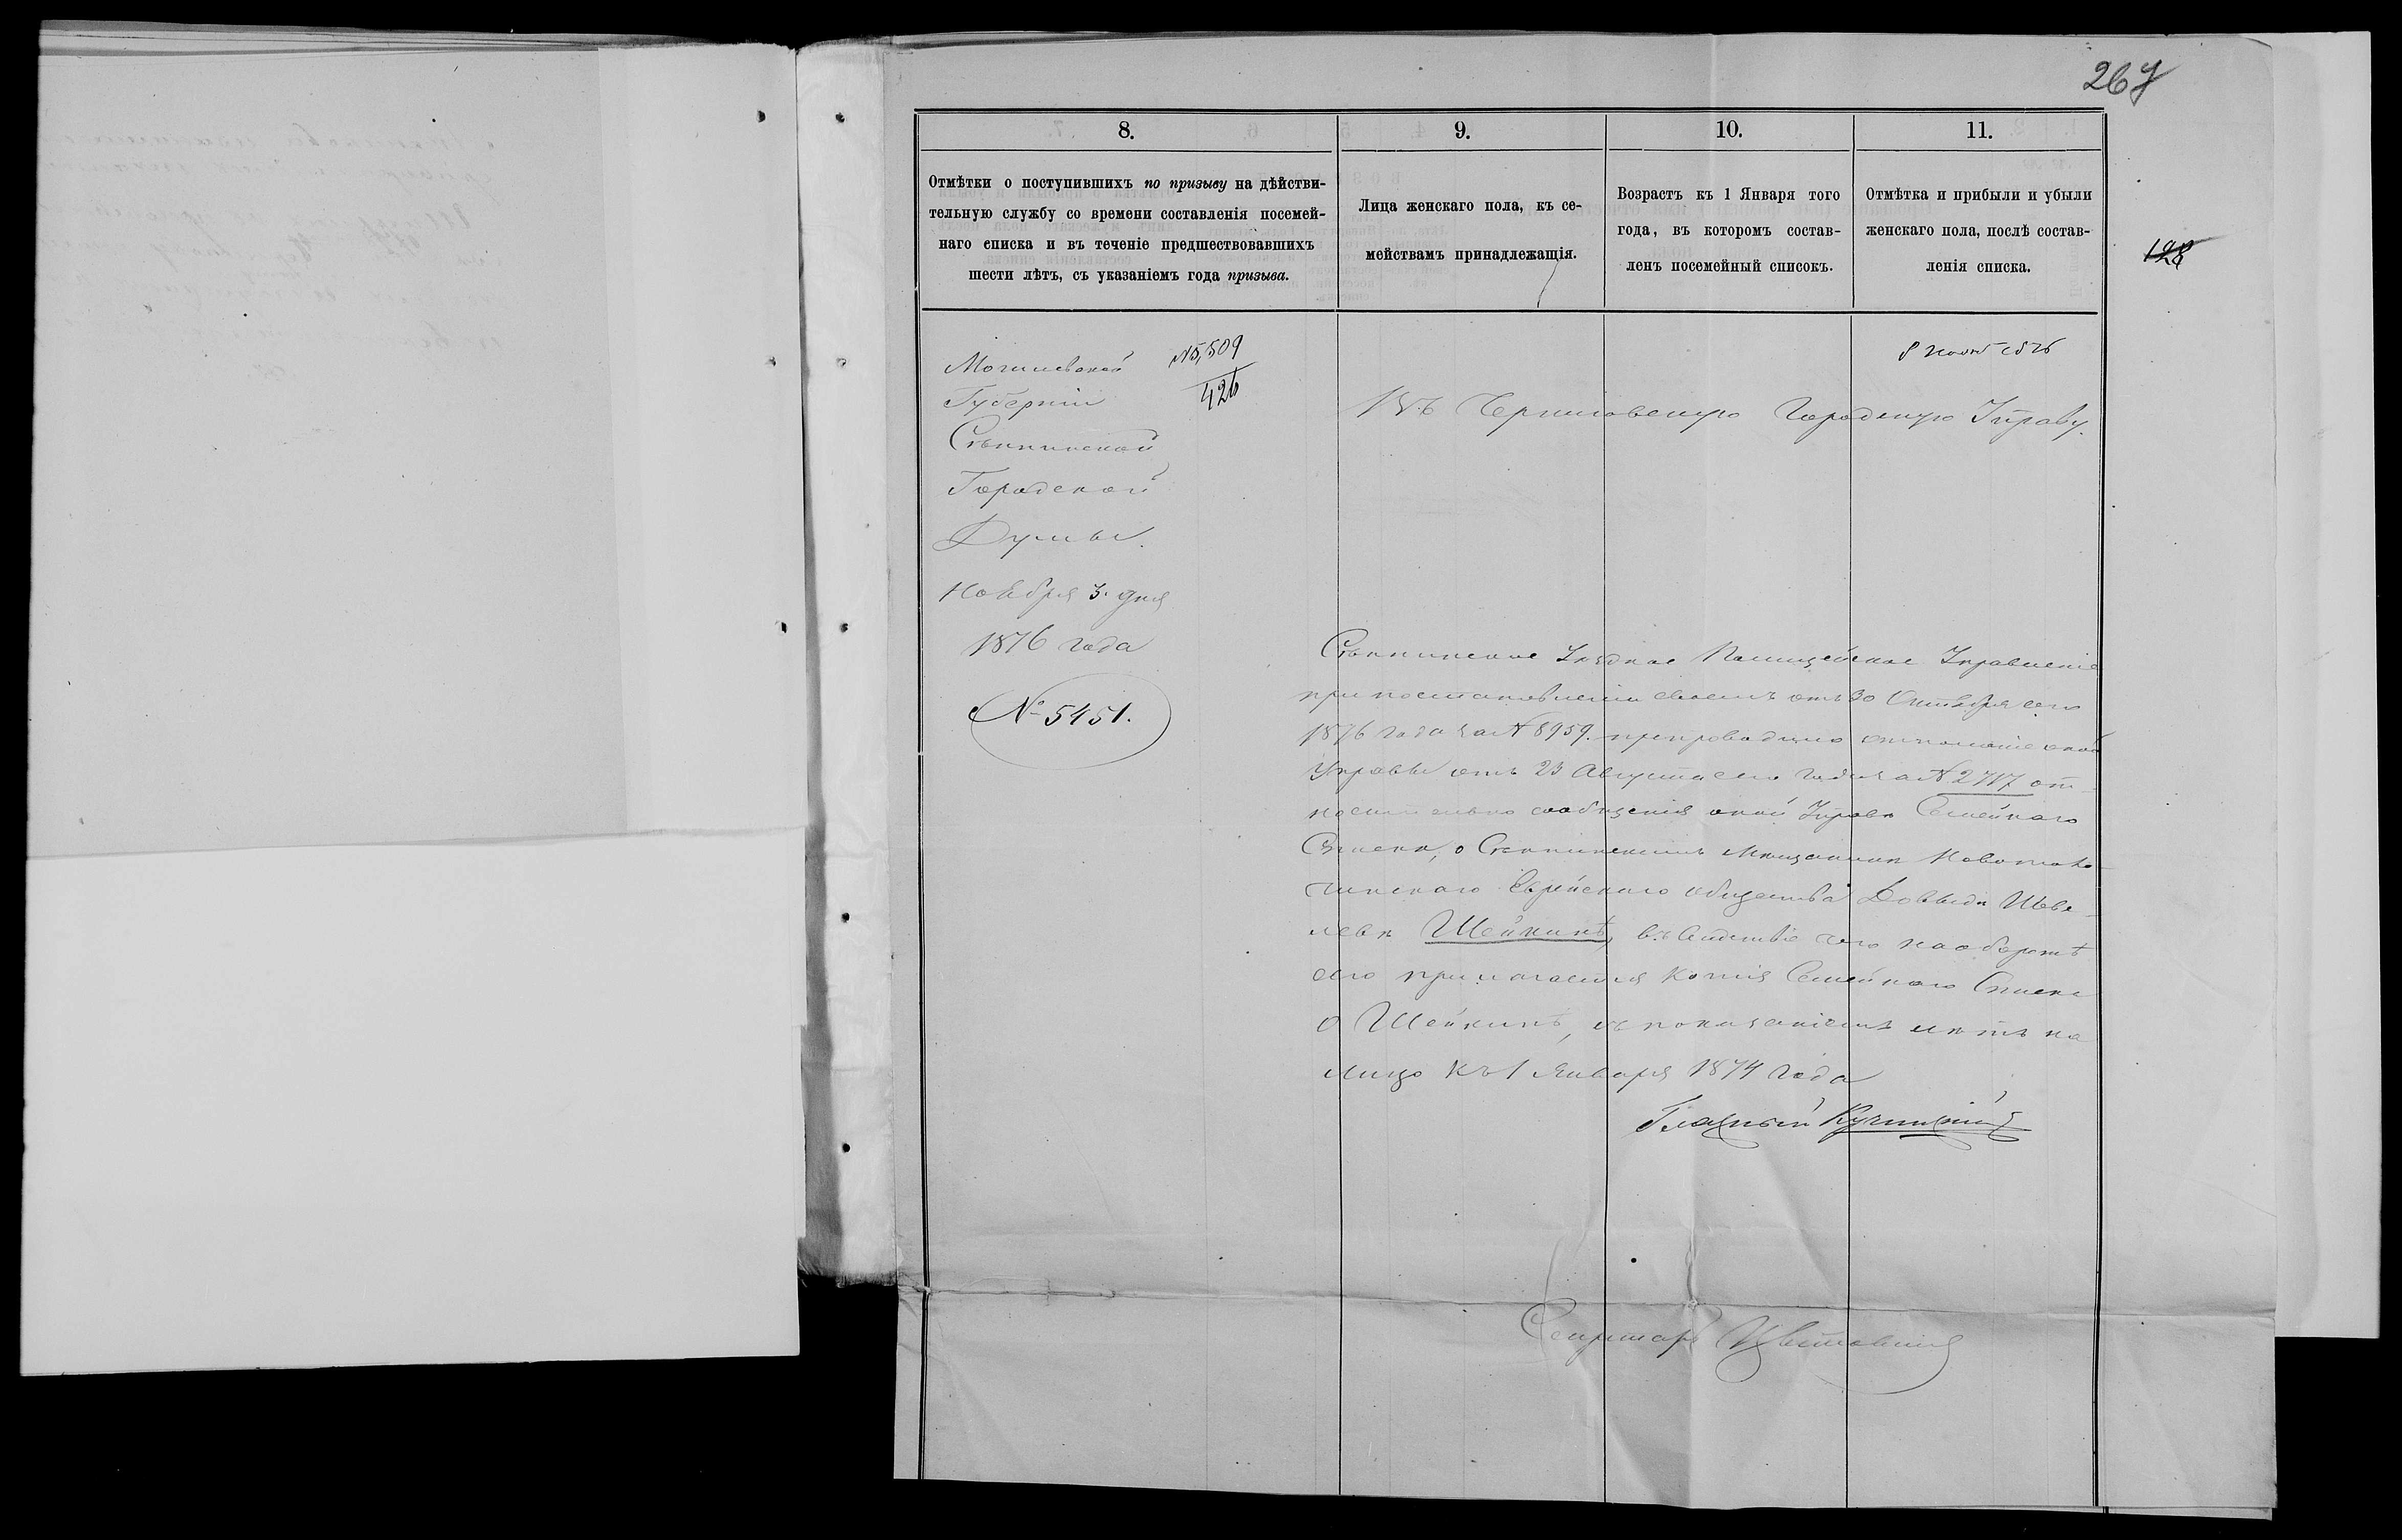 267
8.
9.
10.
11.
Отмѣтки о поступившихъ по призыву на дѣйстви-
тельную службу со времени составленія посемей-
наго списка и въ теченіе предшествовавшихъ
шести лѣтъ, съ указаніемъ года призыва.
Лица женскаго пола, къ се-
мействамъ принадлежащія.
Возрастъ къ 1 Января того
года, въ которомъ состав-
ленъ посемейный списокъ.
Отмѣтка и прибыли и убыли
женскаго пола, послѣ состав-
ленія списка.
128
Могилевской
Губерніи
Сѣннинской
Городской
Думы.
Ноября 3. дня
1876 года
№ 5451.
№ 5,509
426
8 Нояб
Въ Черниговскую Городскую Управу.
Сѣннинское Уѣздное Полицейское Управленіе
при постановленіи своемъ отъ 30 Октября сего
1876 года за № 8959. препроводило отношеніе оной
Управы отъ 23 Августа сего года за № 2717 от-
носительно сообщенія оной Управѣ Семейнаго
Списка, о Сѣннинскимъ Мѣщанинѣ
Еврейскаго общества Довыдѣ Шеве-
левѣ Шейкинѣ, въ слѣдствіе чего на оборотѣ
сего прилагается копія Семейнаго Списка
о Шейкинѣ, съ показаніемъ лѣтъ на
лицо къ 1 Января 1874 года
Гласный
Секретарь